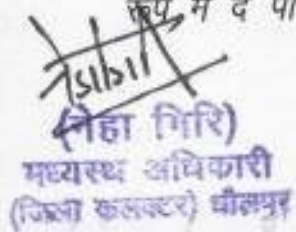 रूप में द
(नेहा गिरि)
मध्यस्थ अधिकारी
(जिला कलक्टर) धौलपुर